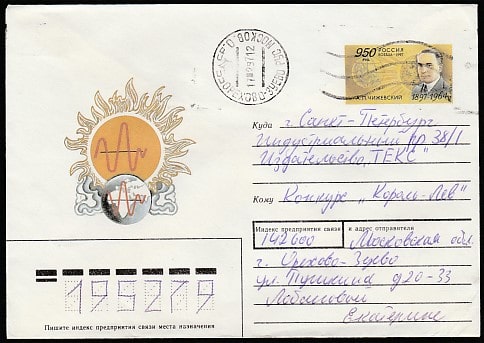 950 РОССИЯ
РУБ. ROSSIJA · 1997
А.Л. ЧИЖЕВСКИЙ
1897-1964
Куда г. Санкт-Петербург
Индустриальный пр. 38/1
Издательство „ТЕКС"
Кому Конкурс „Король-Лев"
Индекс предприятия связи и адрес отправителя
142600 Московская обл.
г. Орехово-Зуево
ул. Пушкина д20-33
Лобановой
Екатерине
195279
Пишите индекс предприятия связи места назначения